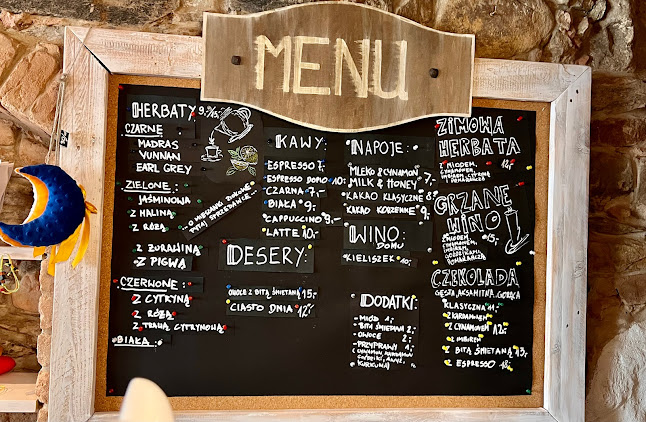 MENU
HERBATY 9.-
CZARNE
MADRAS
YUNNAN
EARL GREY
ZIELONE:
JAŚMINOWA
Z MALINĄ
Z RÓŻĄ
Z ŻURAWINĄ
Z PIGWĄ
CZERWONE:
Z CYTRYNĄ
Z RÓŻĄ
Z TRAWĄ CYTRYNOWĄ
BIAŁA
O MIESZANKI ZIOŁOWE
PYTAJ SPRZEDAWCĘ
KAWY:
ESPRESSO 7.
ESPRESSO DOPIO 10,-
CZARNA 7,-
BIAŁA 9,-
CAPPUCCINO 9,-
LATTE 10,-
DESERY:
OWOCE Z BITĄ ŚMIETANĄ 15,-
CIASTO DNIA 12,-
NAPOJE:
MLEKO & CYNAMON
MILK & HONEY 7,-
KAKAO KLASYCZNE 8
KAKAO KORZENNE 9,-
WINO:
DOMU
KIELISZEK 10,-
DODATKI:
- MIÓD 1
- BITA ŚMIETANA 2
- OWOCE 2
- PRZYPRAWY 1
(CYNAMON, KARDAMON
GOŹDZIKI, ANYŻ,
KURKUMA)
ZIMOWA
HERBATA
Z MIODEM,
CYNAMONEM,
IMBIREM, CYTRYNĄ
I POMARAŃCZĄ
12,-
GRZANE
WINO
Z MIODEM,
CYNAMONEM,
IMBIREM,
GOŹDZIKAMI,
POMARAŃCZĄ
15,-
CZEKOLADA
GĘSTA, AKSAMITNA, GORĄCA
KLASYCZNA 11,-
Z KARDAMONEM
Z CYNAMONEM 12,-
Z IMBIREM
Z BITĄ ŚMIETANĄ 13,-
Z ESPRESSO 18,-